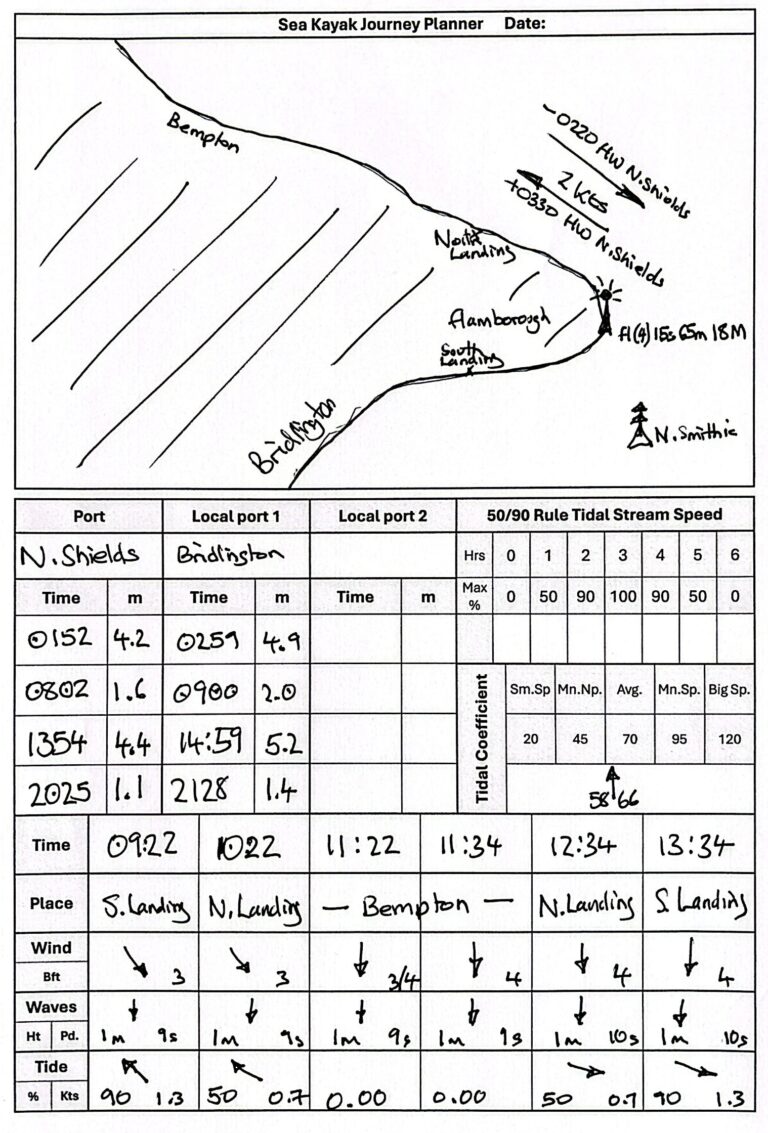 Sea Kayak Journey Planner Date:
Bempton
-0220 HW N.Shields
2 kts
+0330 HW N.Shields
North
Landing
Flamborough
Fl(4) 15s 65m 18M
South
Landing
Bridlington
N. Smithic
Port Local port 1 Local port 2 50/90 Rule Tidal Stream Speed
N. Shields Bridlington Hrs 0 1 2 3 4 5 6
Time m Time m Time m Max % 0 50 90 100 90 50 0
0152 4.2 0259 4.9
0802 1.6 0900 2.0 Tidal Coefficient Sm.Sp Mn.Np. Avg. Mn.Sp. Big Sp.
1354 4.4 14:59 5.2 20 45 70 95 120
2025 1.1 2128 1.4 58 66
Time 09:22 1022 11:22 11:34 12:34 13:34
Place S.Landing N.Landing — Bempton — N.Landing S.Landing
Wind
Bft 3 3 3/4 4 4 4
Waves
Ht Pd. 1m 9s 1m 9s 1m 9s 1m 9s 1m 10s 1m 10s
Tide
% Kts 90 1.3 50 0.7 0.00 0.00 50 0.7 90 1.3